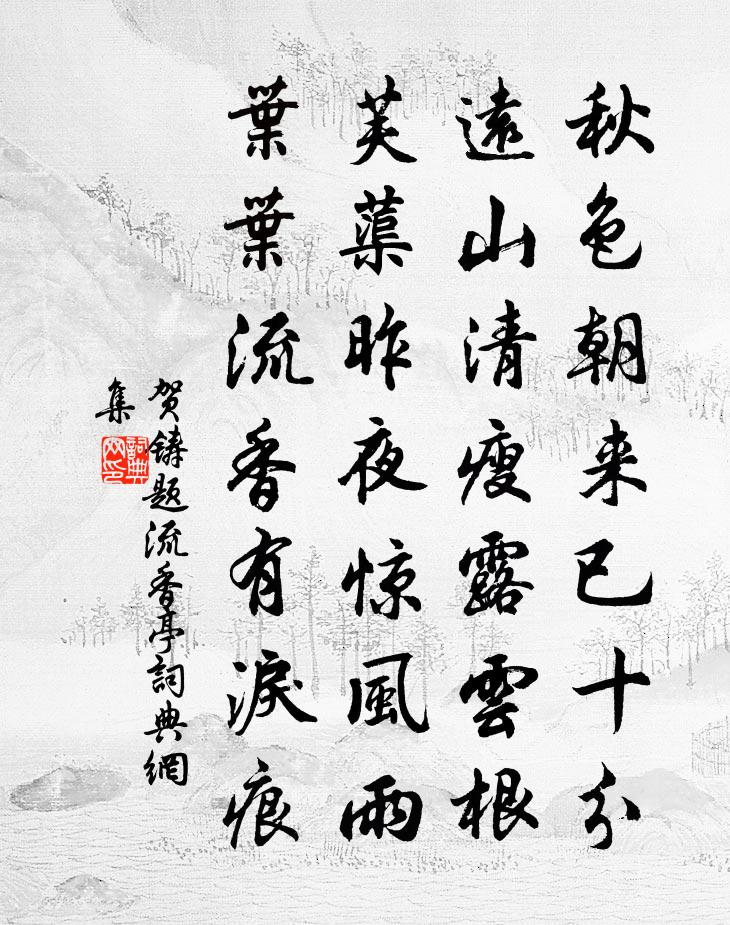 秋色朝来已十分
遠山清瘦露雲根
芙蕖昨夜惊風雨
葉葉流香有淚痕
贺鑄题流香亭詞典網
集
詞典
网印